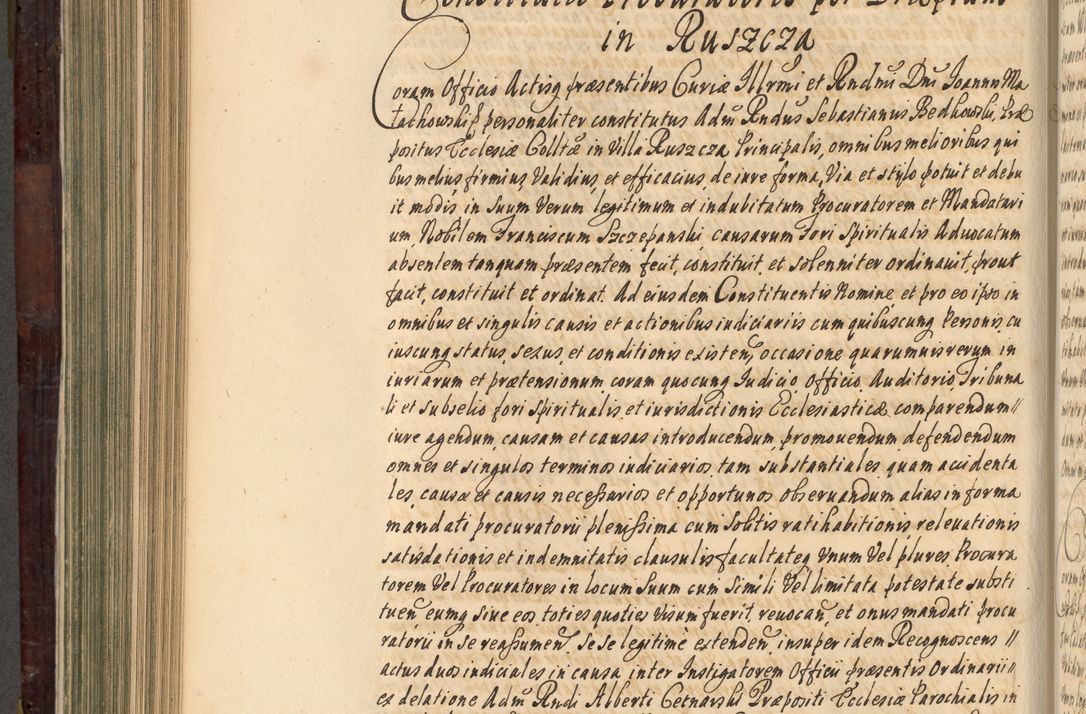 Constitutio Procuratoris per Præptum
in Ruszcza
Coram Officio Actisq præsentibus Curiæ Illrmi et Rndmi Dni Joannis Ma
łachowski personaliter constitutus Adm Rndus Sebastianus Bedkowski, Præ
positus Ecclesiæ Colltæ in Villa Ruszcza Principalis, omnibus melioribus qui
bus melius, firmius, Validius, et efficacius, de iure forma, Via et stylo potuit et debu
it modis, in Suum Verum legitimum et indubitatum Procuratorem et Mandatari
um, Nobilem Franciscum Szczepanski causarum Fori Spiritualis Aduocatum
absentem tanquam præsentem fecit, constituit, et solenniter ordinauit, prout
facit, constituit et ordinat. Ad eiusdem Constituentis Nomine, et pro eo ipso in
omnibus et singulis causis et actionibus iudiciariis cum quibuscunq Personis, cu
iuscunq status, sexus et conditionis existen, occasione quarumuis rerum in
iuriarum et prætensionum coram quocunq Iudicio Officio Auditorio, Tribuna
li et subselio fori Spiritualis, et iurisdictionis Ecclesiasticæ comparendum //
iure agendum, causam et causas introducendum, promouendum, defendendum
omnes et singulos terminos iudiciarios, tam substantiales quam accidenta
les, causæ et causis necessarios et opportunos obseruandum, alias in forma
mandati procuratorii plenissima cum Solitis ratihabitionis, releuationis
satisdationis et indemnitatis clausulis, facultateq Vnum Vel plures Procura
torem Vel Procuratores in locum Suum cum Simili Vel limitata potestate substi
tuen, eumq siue eos toties quoties Visum fuerit, reuocan, et onus mandati procu
ratorii in se reassumen, Se se legitime extenden, insuper idem Recognoscens //
actus duos iudiciales in causa inter Instigatorem Officii præsentis Ordinarii //
ex delatione Adm Rndi Alberti Cetnarski Præpositi Ecclesiæ Parochialis in